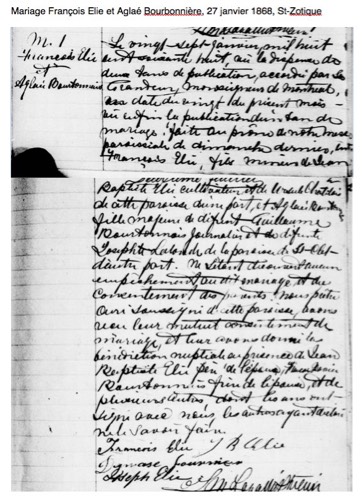 Mariage François Elie et Aglaé Bourbonnière, 27 janvier 1868, St-Zotique
M. 1
François Elie
et
Aglaé Bourbonnais
Le vingt sept janvier, mil huit
cent soixante huit, vu la dispense de
deux bans de publication, accordée par Sa
Grandeur Monseigneur de Montréal,
en date du vingt du présent mois
vu aussi la publication d'un ban de
mariage faite au prône de notre messe
paroissiale de dimanche dernier, entre
François Elie, fils mineur de Jean
Baptiste Elie cultivateur et de Ursule
de cette paroisse d'une part, et Aglaé
fille majeure de défunt Guillaume
Bourbonnais Journalier et de défunte
Josephte Lalonde de la paroisse de St
d'autre part. Ne s'étant découvert aucun
empêchement au dit mariage, et du
consentement des parents, nous prêtre
curé soussigné de cette paroisse, avons
reçu leur mutuel consentement de
mariage, et leur avons donné la
bénédiction nuptiale en présence de Jean
Baptiste Elie père de l'époux,
Bourbonnais frère de l'épouse, et de
plusieurs autres, dont les uns ont
signé avec nous, les autres ayant déclaré
ne le savoir faire
François Elie J B Elie
Fournier
Joseph Elie